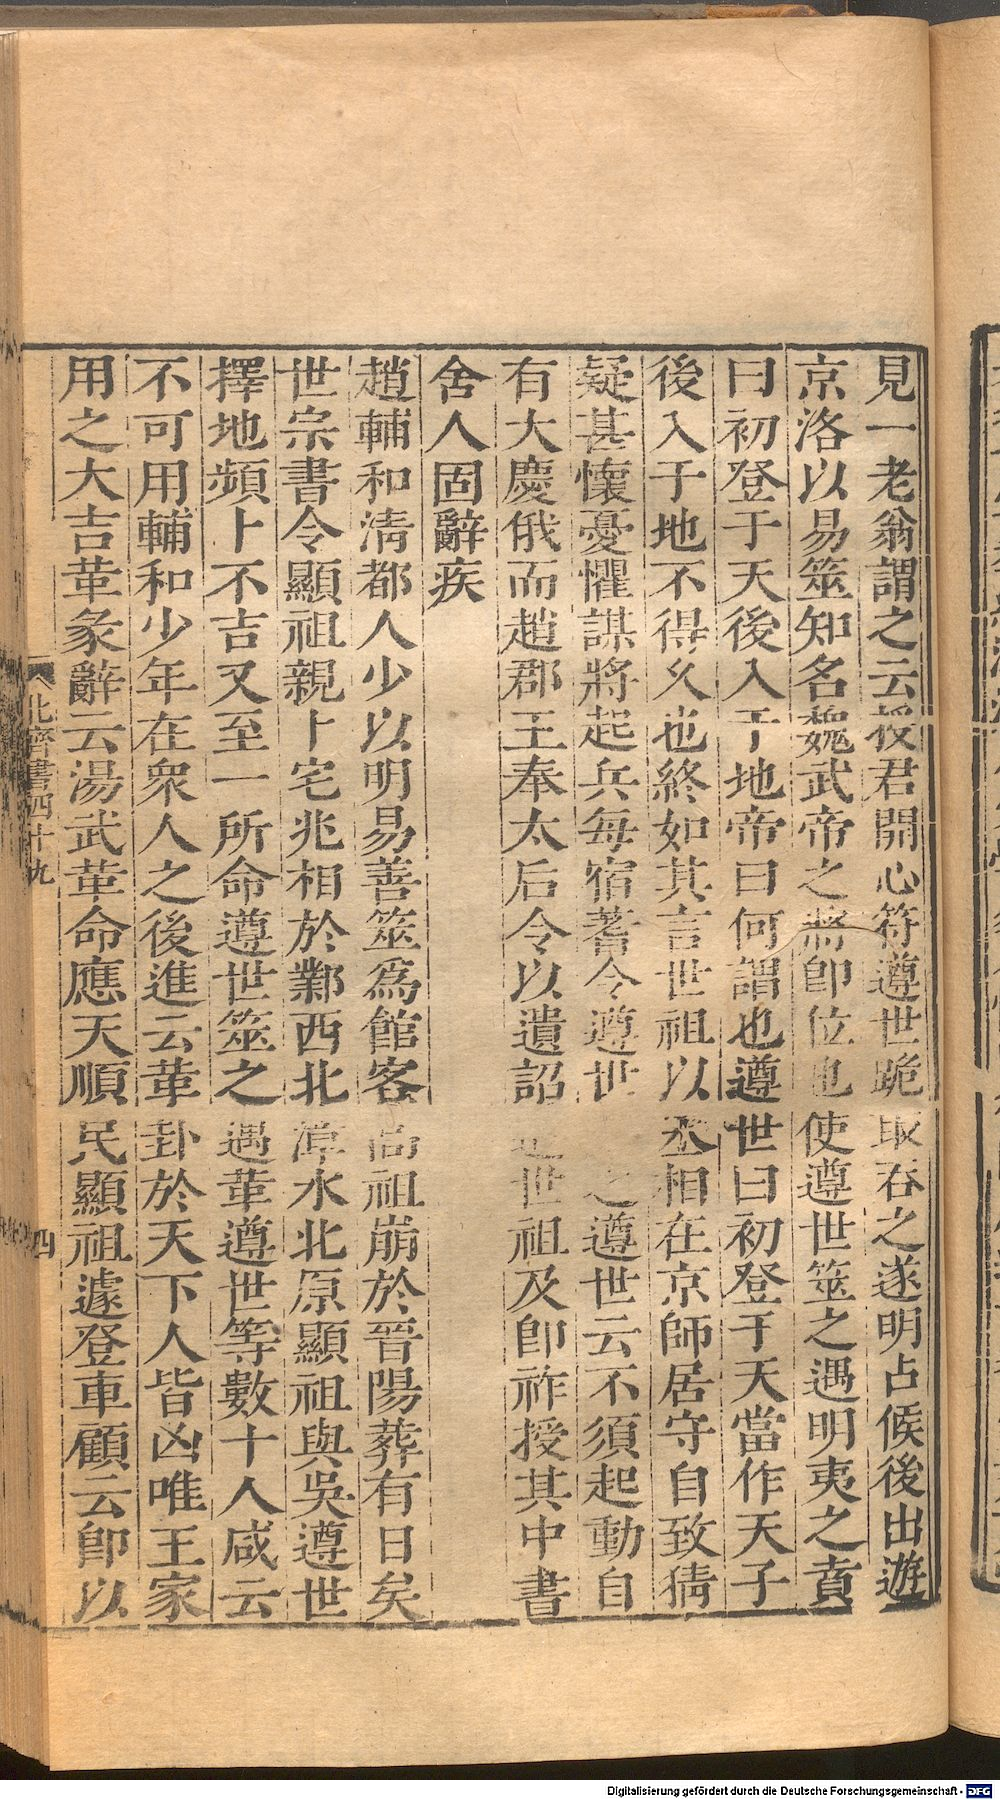 見一老翁謂之云授君開心符遵世跪取吞之遂明占候後出遊
京洛以易筮知名魏武帝之將卽位也使遵世筮之遇明夷之賁
曰初登于天後入于地帝曰何謂也遵世曰初登于天當作天子
後入于地不得久也終如其言世祖以丞相在京師居守自致猜
疑甚懷憂懼謀將起兵每宿著令遵世之遵世云不須起動自
有大慶俄而趙郡王奉太后令以遺詔世祖及卽祚授其中書
舍人固辭疾
趙輔和淸都人少以明易善筮爲館客高祖崩於晉陽葬有日矣
世宗書令顯祖親卜宅兆相於鄴西北漳水北原顯祖與吳遵世
擇地頻卜不吉又至一所命遵世筮之遇革遵世等數十人咸云
不可用輔和少年在衆人之後進云革卦於天下人皆凶唯王家
用之大吉革彖辭云湯武革命應天順民顯祖遽登車顧云卽以
北齊書四十九
四
Digitalisierung gefördert durch die Deutsche Forschungsgemeinschaft - DFG